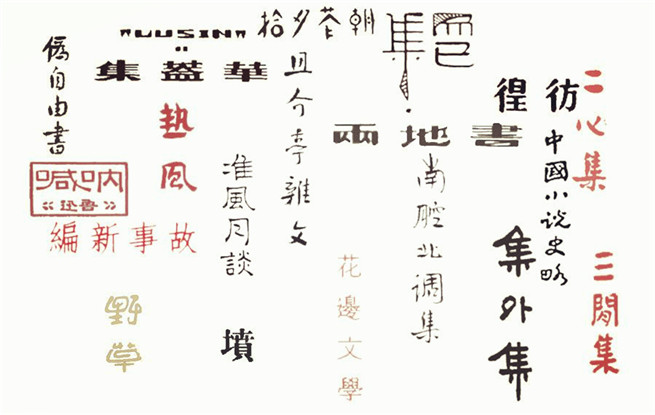 "LUSIN"
朝花夕拾
而已集
僞自由書
華蓋集
且介亭雜文
彷徨
二心集
热風
兩地書
中國小说史略
吶喊
魯迅
准風月談
南腔北调集
故事新編
花邊文學
集外集
三閒集
野草
墳